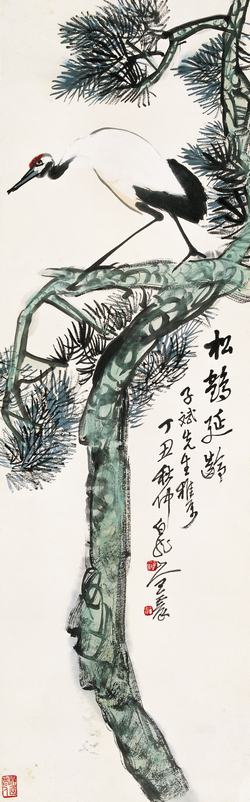 松鹤延龄
子斌先生雅属
丁丑秋仲白龙山人王震